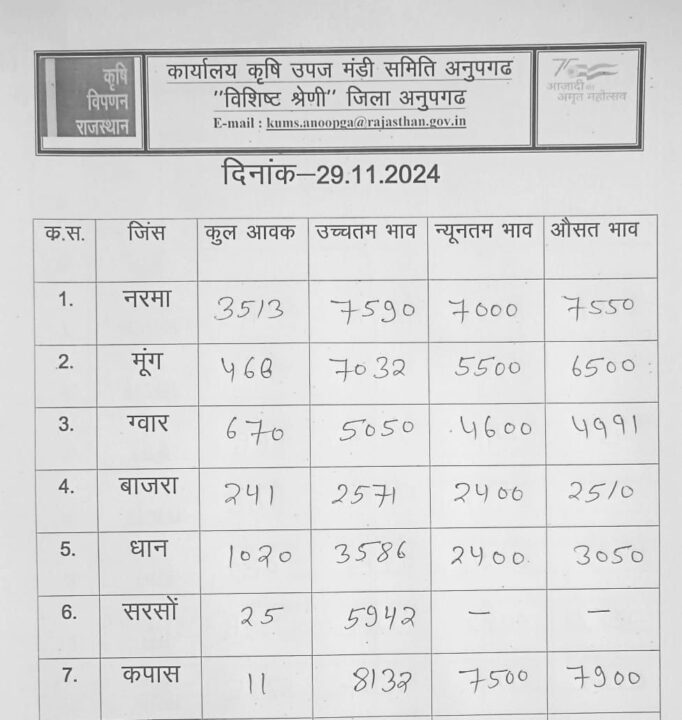 कृषि
विपणन
राजस्थान
कार्यालय कृषि उपज मंडी समिति अनुपगढ
"विशिष्ट श्रेणी" जिला अनुपगढ
E-mail : kums.anoopga@rajasthan.gov.in
75
आजादी का
अमृत महोत्सव
दिनांक–29.11.2024
क.स. जिंस कुल आवक उच्चतम भाव न्यूनतम भाव औसत भाव
1. नरमा 3513 7590 7000 7550
2. मूंग 468 7032 5500 6500
3. ग्वार 670 5050 4600 4991
4. बाजरा 241 2571 2400 2510
5. धान 1020 3586 2400 3050
6. सरसों 25 5942 – –
7. कपास 11 8132 7500 7900